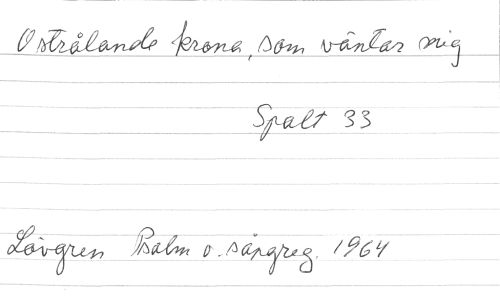 O strålande krona, som väntar mig
Spalt 33
Lövgren Psalm o. sångreg. 1964